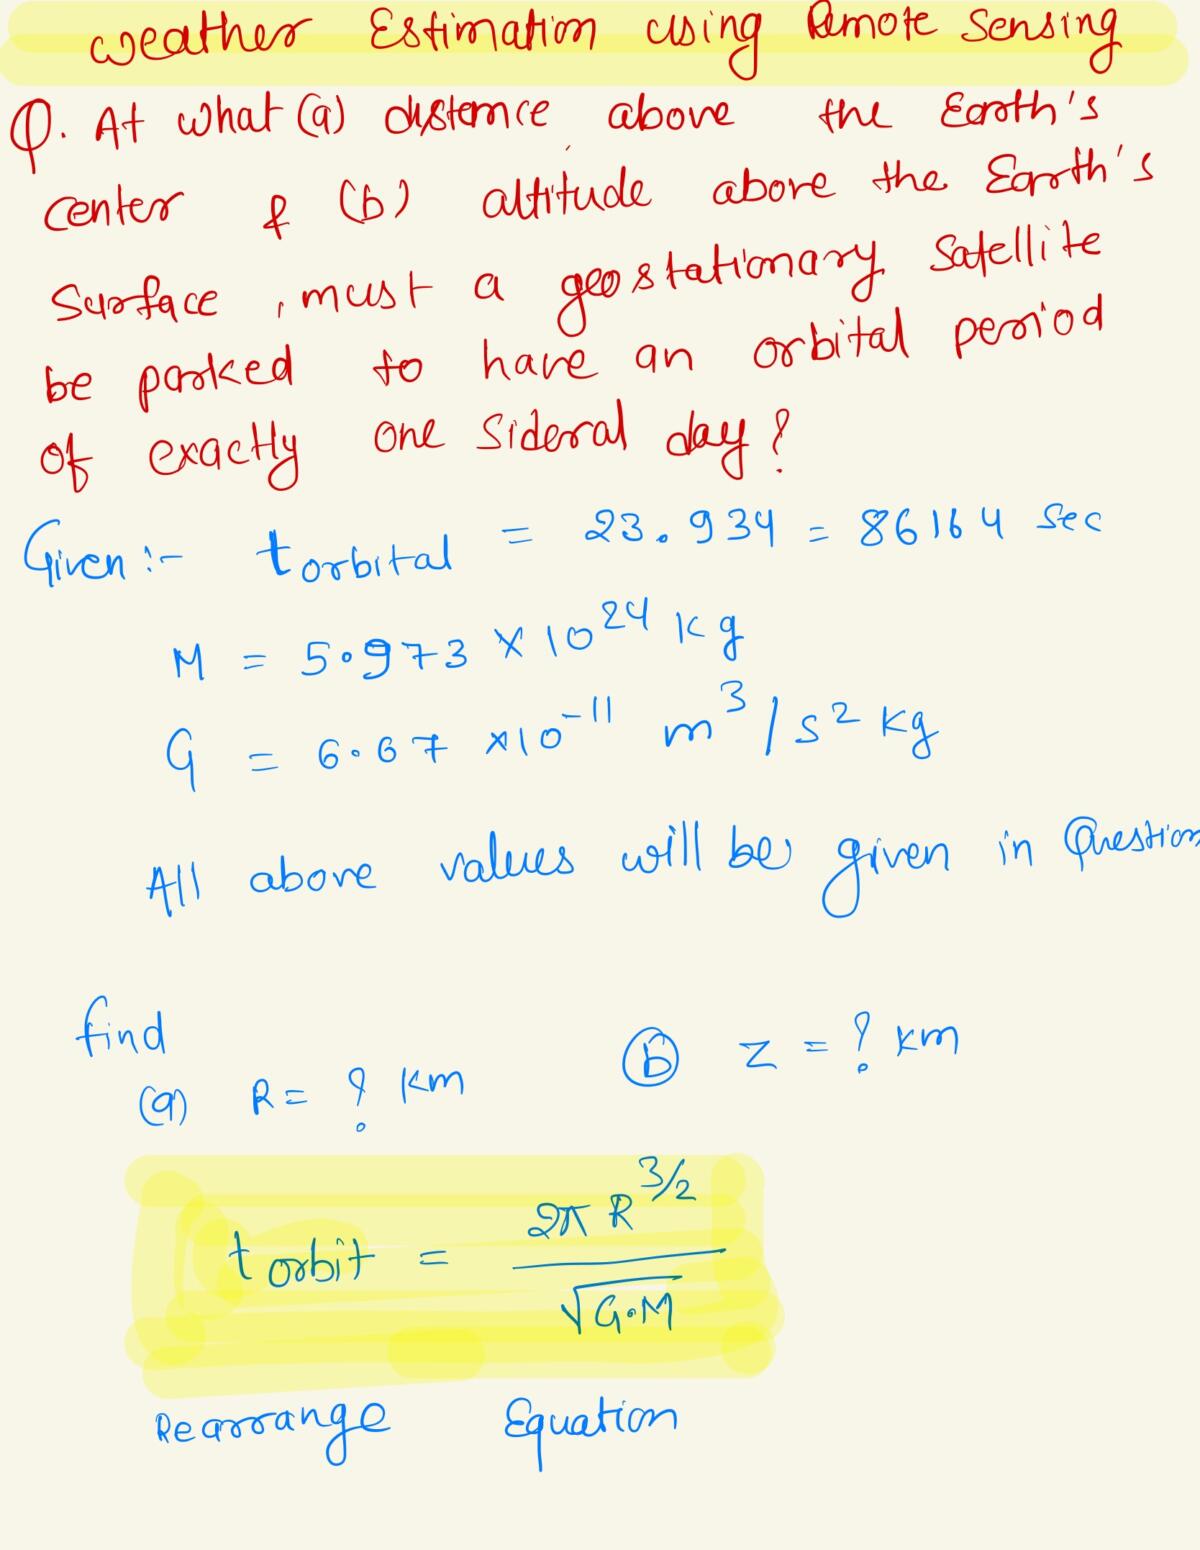 Weather Estimation using Remote Sensing
Q. At what (a) distance above the Earth's
center & (b) altitude above the Earth's
Surface, must a geostationary Satellite
be parked to have an orbital period
of exactly one Sideral day?
Given :- t orbital = 23.934 = 86164 sec
M = 5.973 × 10^24 kg
G = 6.67 × 10^-11 m^3 / s^2 kg
All above values will be given in Question
find
(a) R = ? km (b) z = ? km
t orbit = 2π R^3/2 / √G.M
Rearrange Equation